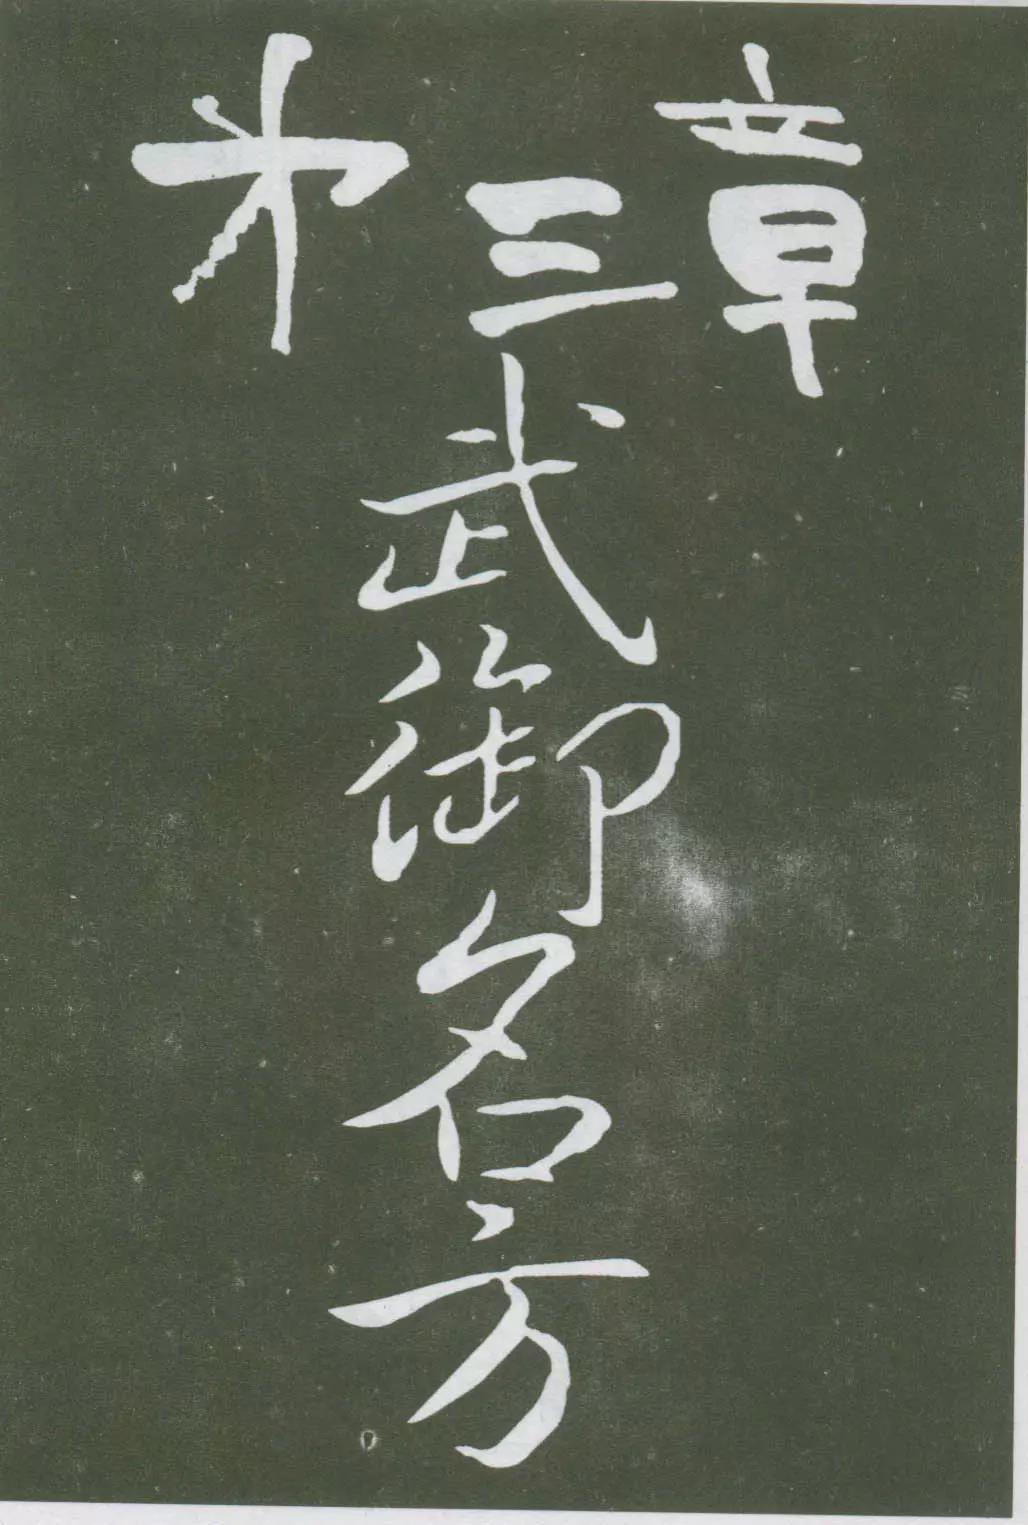 第三章
武御名方